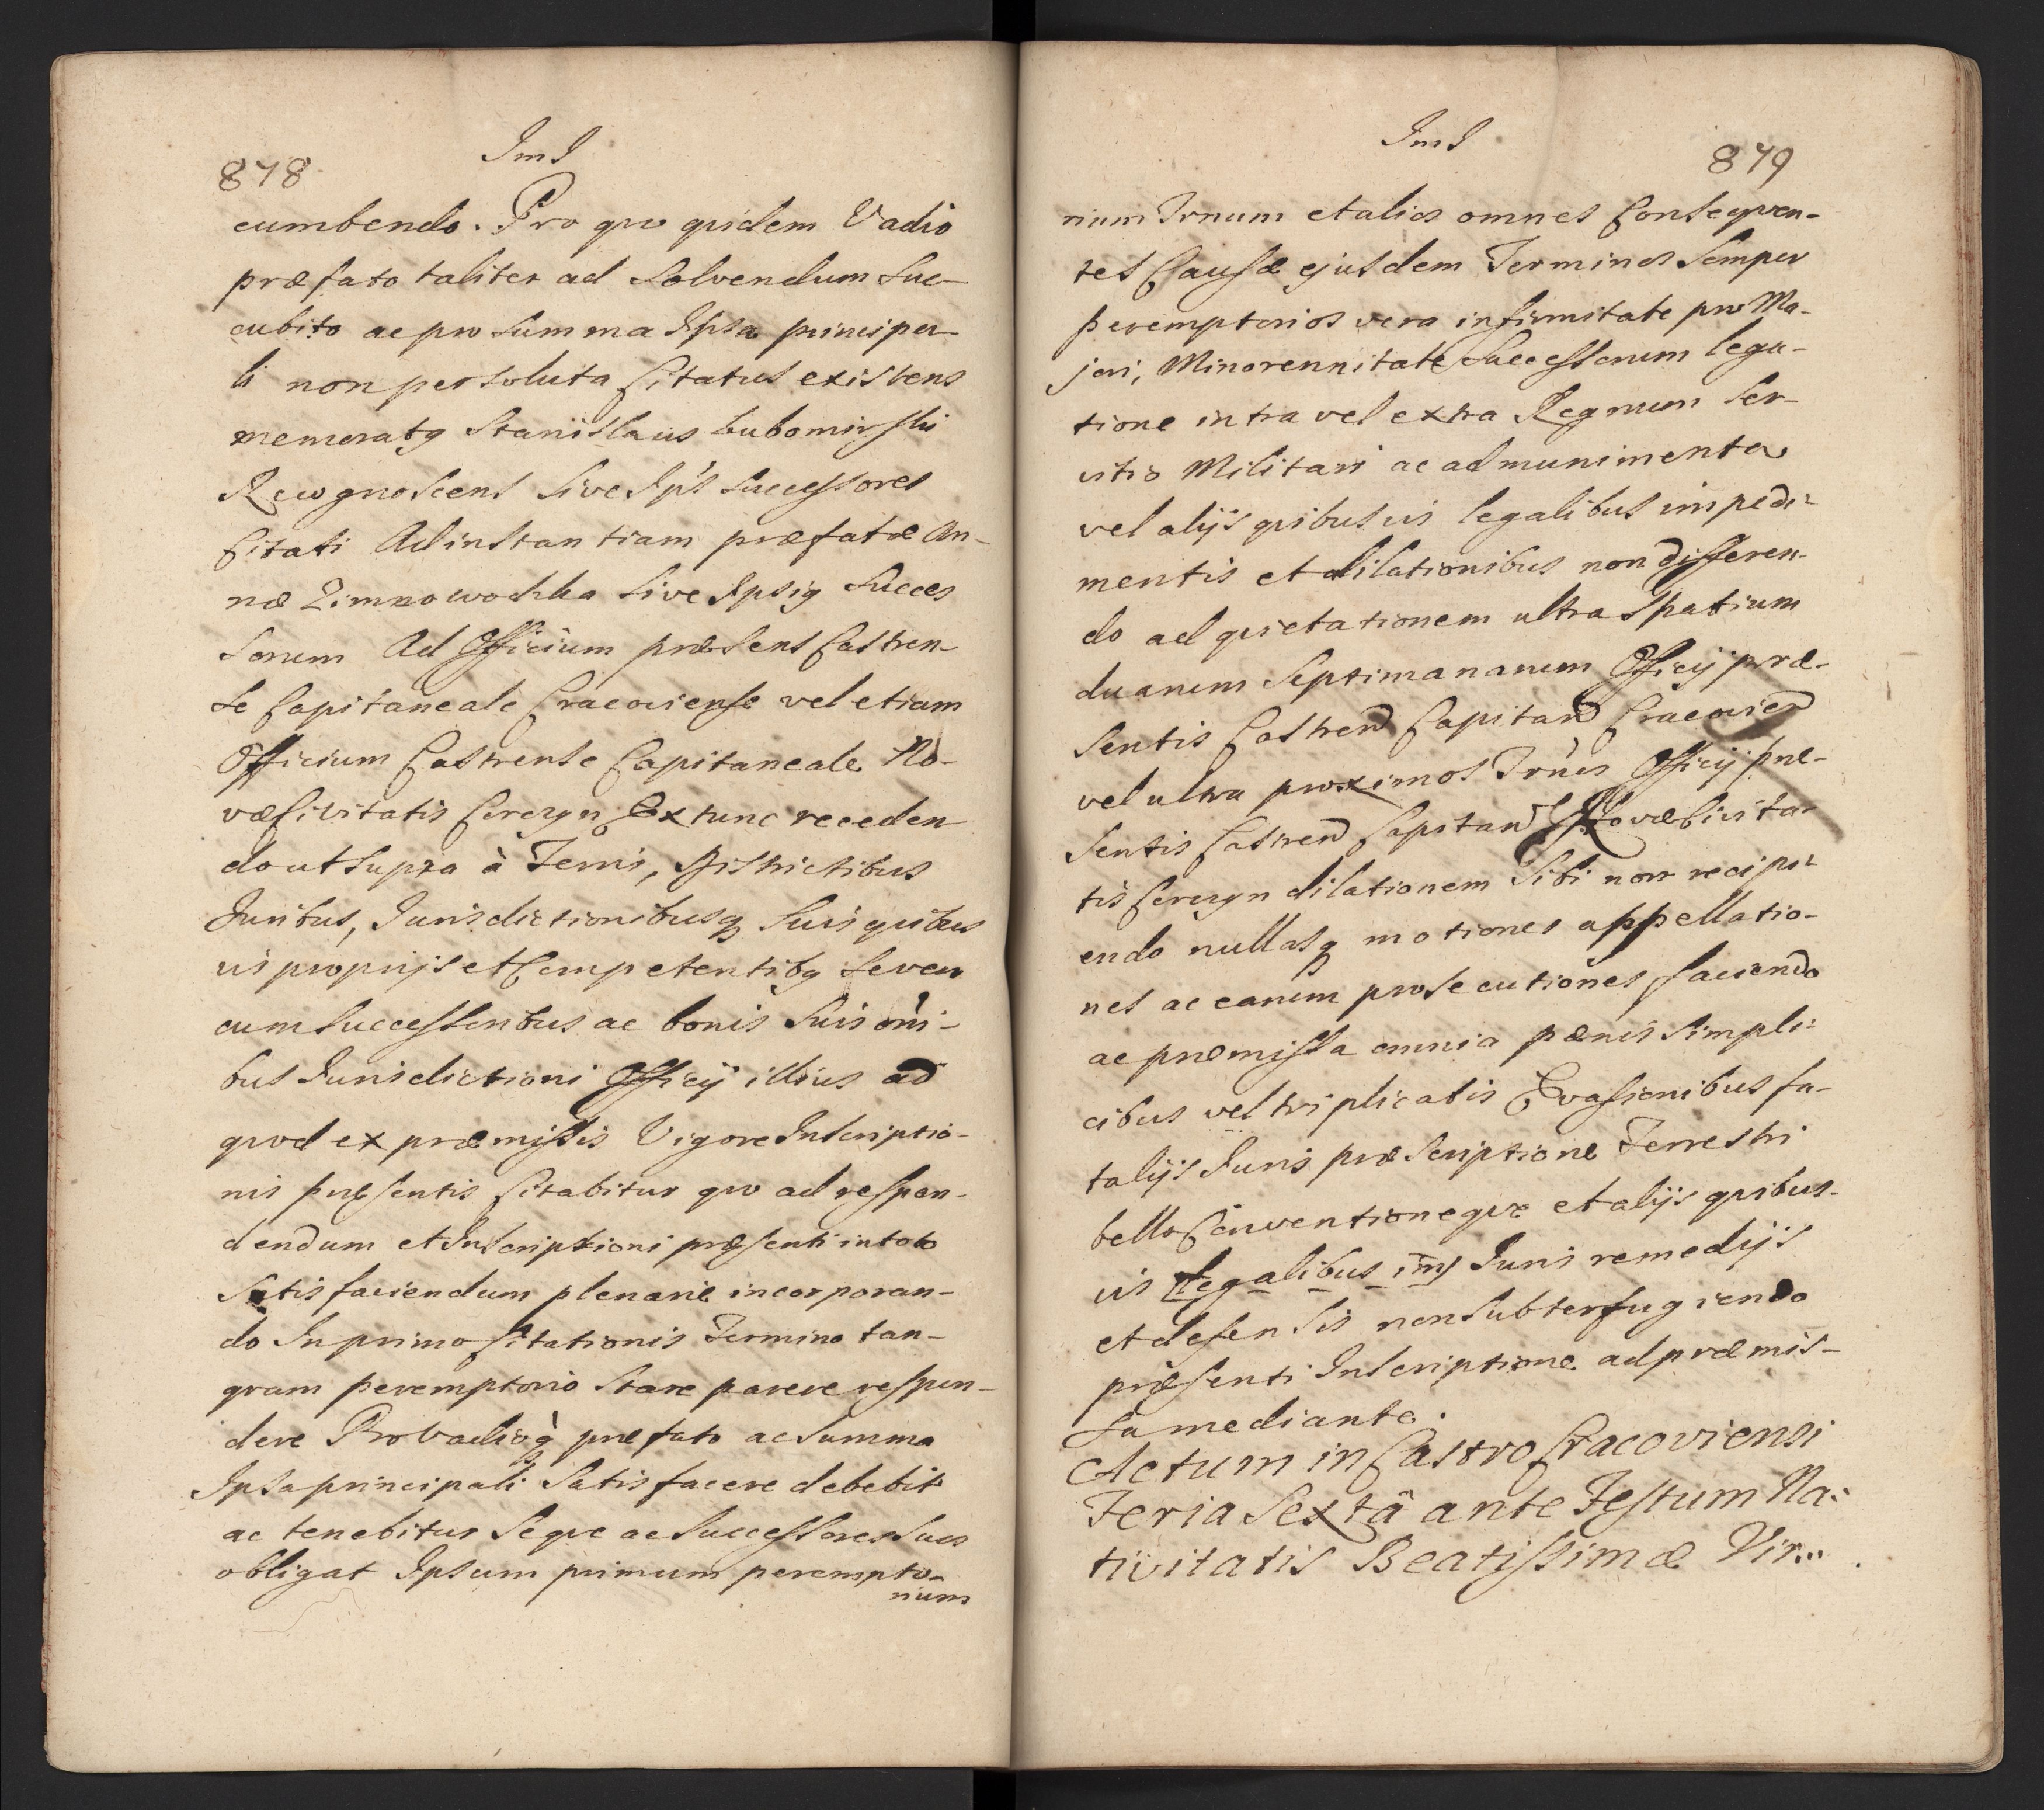 878
ImJ
cumbendo. Pro quo quidem Vadio
præfato taliter ad Solvendum Suc-
cubito ac pro Summa Ipsa principa-
li non persoluta Citatus existens
memoratq Stanislaus Lubomirski
Recognoscens Sive Ips's Successores
Citati Ad instantiam præfatæ An-
næ Zimnowodska Sive Ipsiq Succes
Sorum Ad Officium præsens Castren-
Se Capitaneale Cracoviense vel etiam
Officium Castrense Capitaneale No-
væ Civitatis Corczyn Ex tunc receden
do ut Supra à Terris, Districtibus
Juribus, Jurisdictionibusq Suis quibus
vis proprijs et Competentibq Seven
cum Successoribus ac bonis Suis oni-
bus Jurisdictioni Officij illius ad
quod ex præmissis Vigore Inscriptio-
nis præsentis Citabitur quo ad respon-
dendum et Inscriptioni præsenti in toto
Satis faciendum plenarie incorporan-
do In primo Citationis Termino tan-
quam peremptorio Stare parere respon-
dere Pro Vadiòq præfato ac Summa
Ipsa principali Satis facere debebit
ac tenebitur Seque ac Successores Suos
obligat Ipsum primum perempto-
rium
ImJ
879
rium Trnum et alios omnes Conseqven-
tes Causæ ejusdem Terminos Semper
peremptorios vera infirmitate pro Ma-
jori, Minorennitate Successorum lega-
tione intra vel extra Regnum Ser-
vitio Militari ac ad munimenta
vel alijs quibusvis legalibus impedi-
mentis et dilationibus non differen-
do ad quietationem ultra Spatium
duarum Septimanarum Officij præ-
Sentis Castren Capitan Cracovien
vel ultra proximos Trnos Officij præ-
Sentis Castren Capitan Novæ Civita-
tis Corczyn dilationem Sibi non recipi-
endo nullasq motiones appellatio-
nes ac earum prosecutiones faciendo
ac præmissa omnia pænis Simpli-
cibus vel triplicatis Evasionibus fa-
talijs Juris præscriptione Terrestri
bello Conventioneque et alijs quibus-
vis legalibus im Juris remedijs
et defensis non Subterfugiendo
præsenti Inscriptione ad præmis-
Sa mediante.
Actum in Castro Cracoviensi
Feria Sextâ ante Festum Na-
tivitatis Beatissimæ Vir...